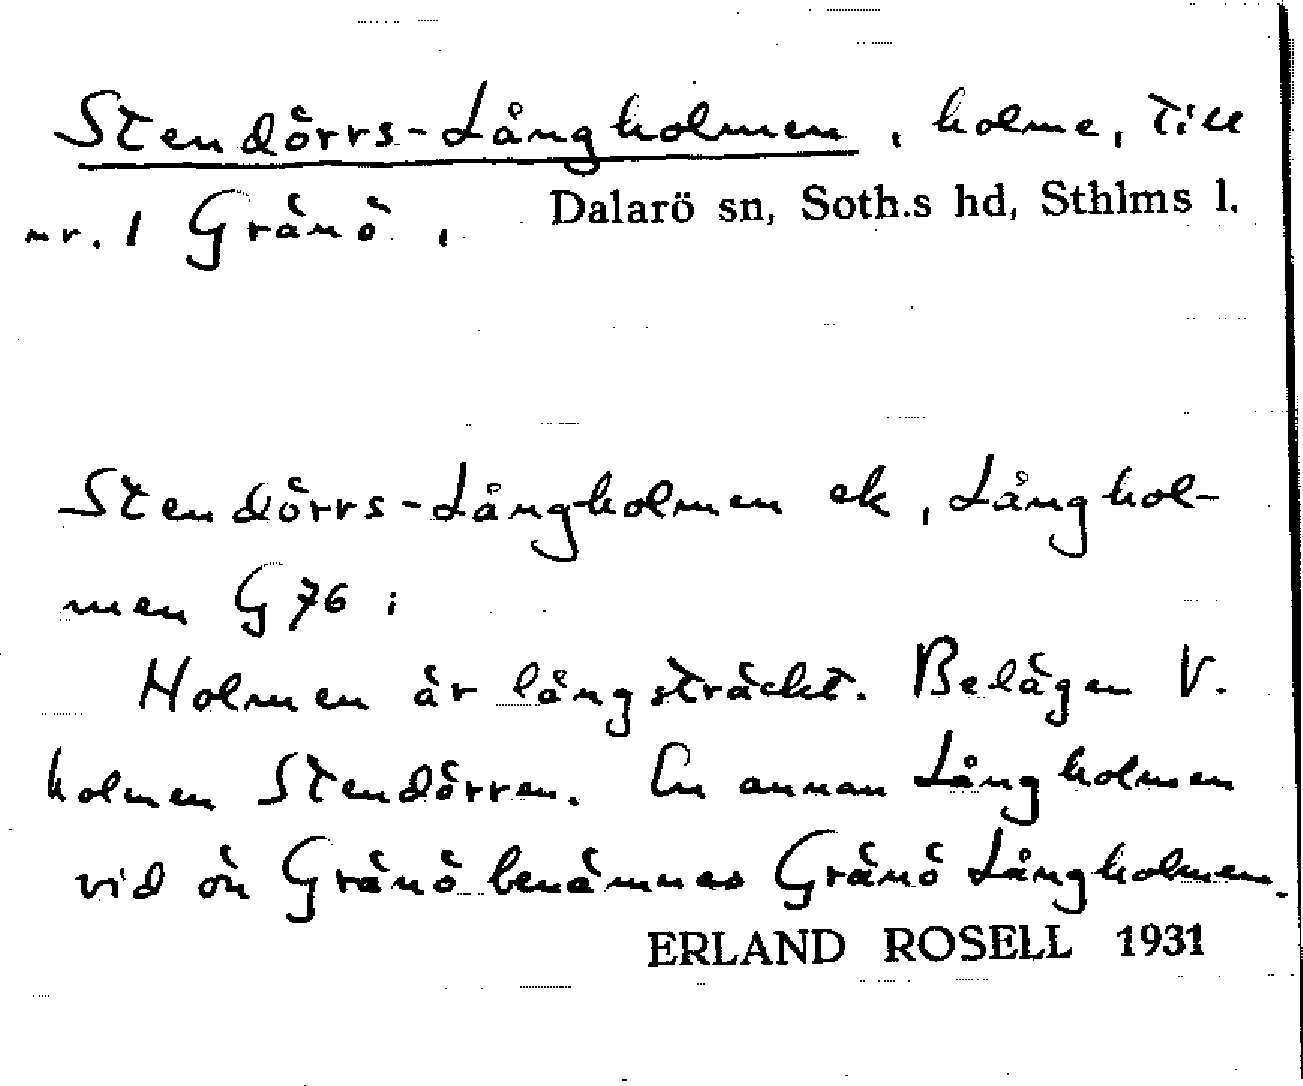 Stendörrs-Långholmen, holme, till
nr. 1 Gränö, Dalarö sn, Soth.s hd, Sthlms l.
Stendörrs-Långholmen ek, Långhol-
men G 76;
Holmen är långsträckt. Belägen V.
holmen Stendörren. En annan Långholmen
vid ön Gränö benämnes Gränö Långholmen.
ERLAND ROSELL 1931